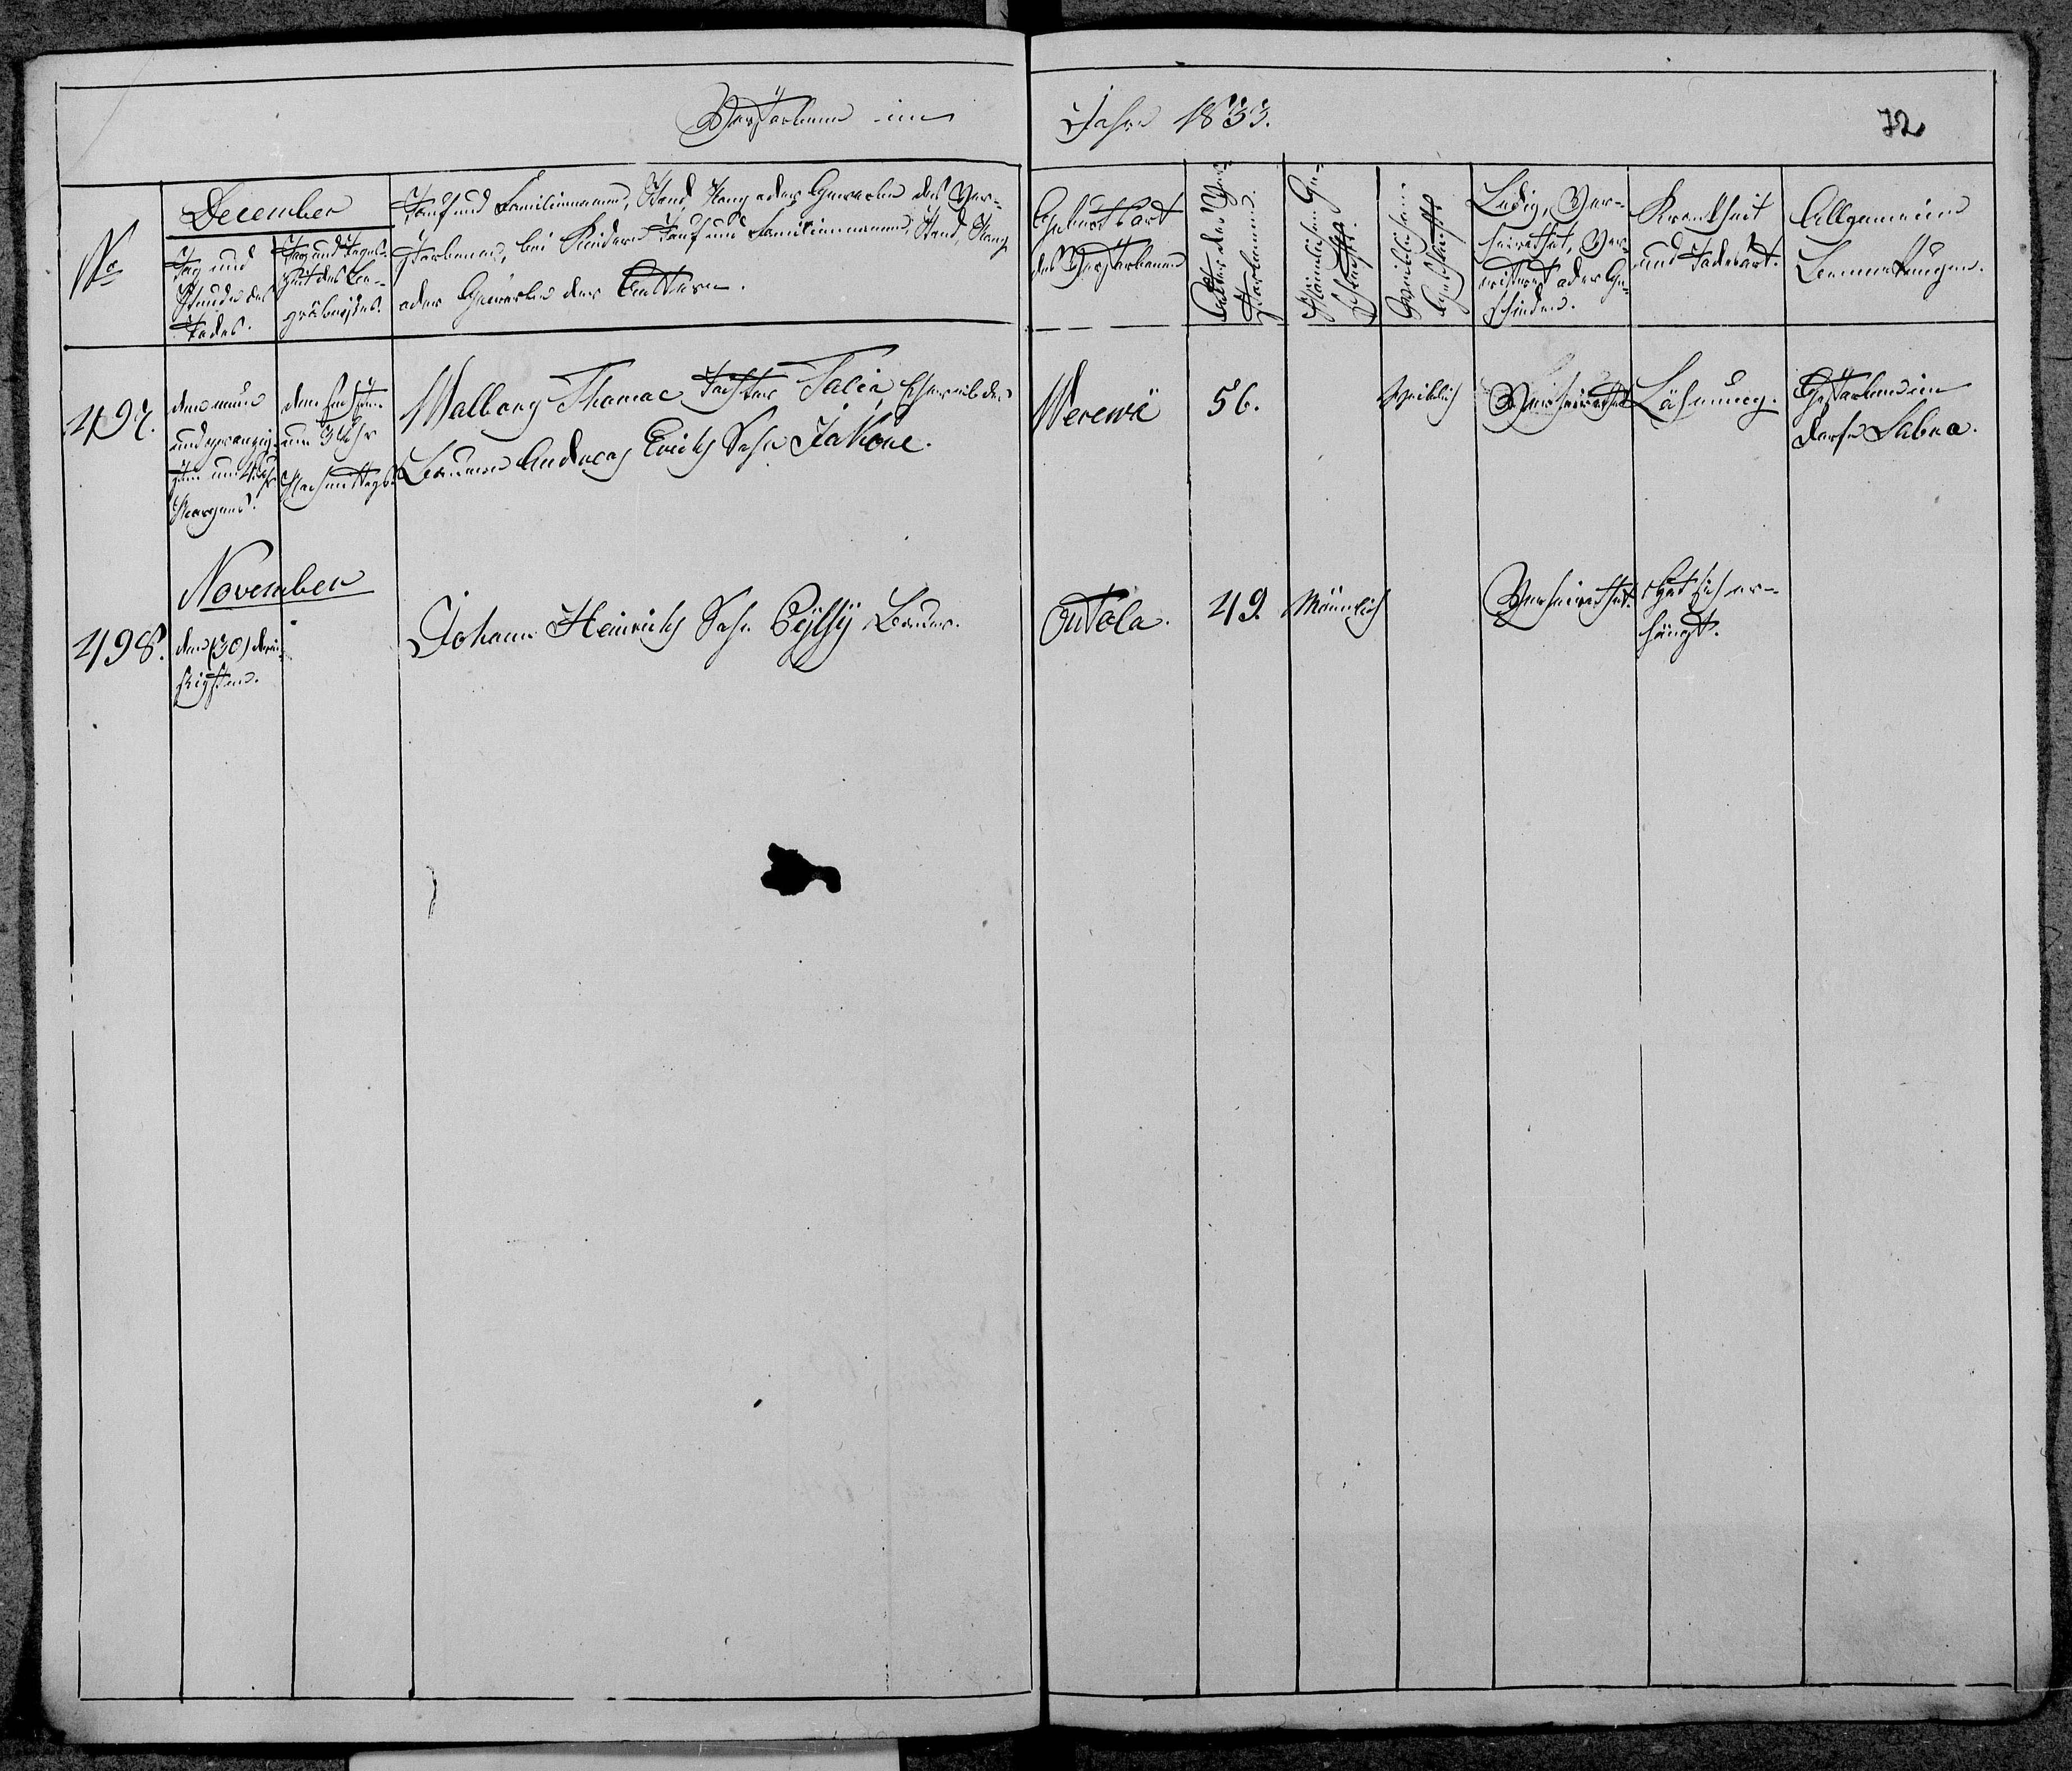 Verstorbene im Jahre 1833.
72
No
December
Tag und
Stunde des
Todes.
Tag und Tages-
zeit des Be-
gräbnisses.
Tauf und Familienname, Stand, Rang oder Gewerbe des Ver-
storbenen, bei Kindern Tauf und Familiennamen, Stand, Rang
oder Gewerbe der Aeltern.
Geburtsort
des Verstorbenen
Alter des Ver-
storbenen.
Männlichen Ge-
schlechts.
Weiblichen
Geschlechts
Ledig, Ver-
heirathet, Ver-
wittwet oder Ge-
schieden.
Krankheit
und Todesart.
Allgemeine
Bemerkungen.
497.
den neun
und zwanzig-
sten um 4 Uhr
Morgens.
den sechsten
um 3 Uhr
Nachmittags.
Walborg Thomae Tochter Talia Eheweib des
Bauern Andreas Erichs Sohn Jakone.
Werewä
56.
Weiblich
Verheirathet
Lähmung.
Gestorben im
Dorfe Sabea.
November
498.
den (30) drei-
ßigsten.
Johann Heinrichs Sohn Bauer.
Outola.
49.
Männlich
Verheirathet.
Hat sich er-
hängt.